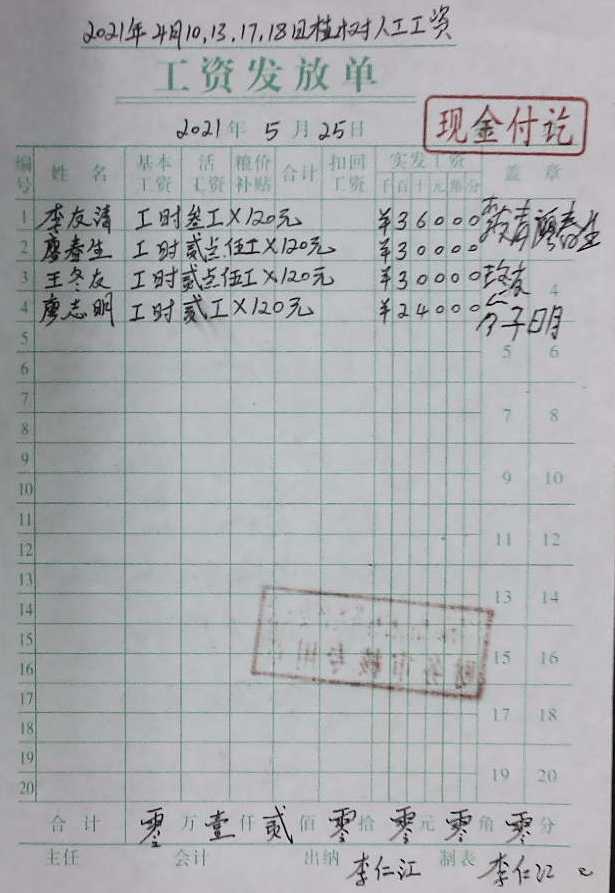 2021年4月10.13.17.18日植树人工工资
工资发放单
2021年5月25日
现金付讫
编号 姓名 基本工资 活工资 粮价补贴 合计 扣回工资 实发工资 千百十元角分 盖章
1 李友清 工时叁工×120元 ¥36000
2 廖春生 工时贰点伍工×120元 ¥30000 廖春生
3 王冬友 工时贰点伍工×120元 ¥30000
4 廖志明 工时贰工×120元 ¥24000 4
5
6 5 6
7
8 7 8
9
10 9 10
11
12 11 12
13
14 13 14
15
16 15 16
17
18 17 18
19
20 19 20
合计 零万壹仟贰佰零拾零元零角零分
主任 会计 出纳 李仁江 制表 李仁江